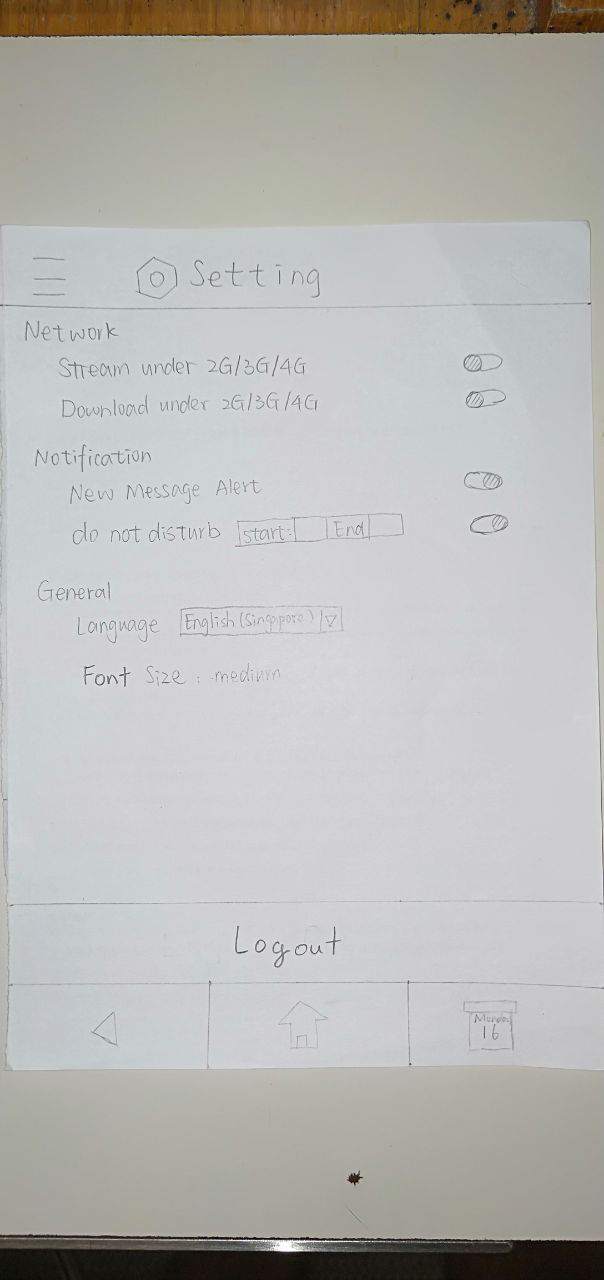 Setting
Network
Stream under 2G/3G/4G
Download under 2G/3G/4G
Notification
New Message Alert
do not disturb start: End
General
Language English (Singapore)
Font Size : medium
Logout
Monday
16